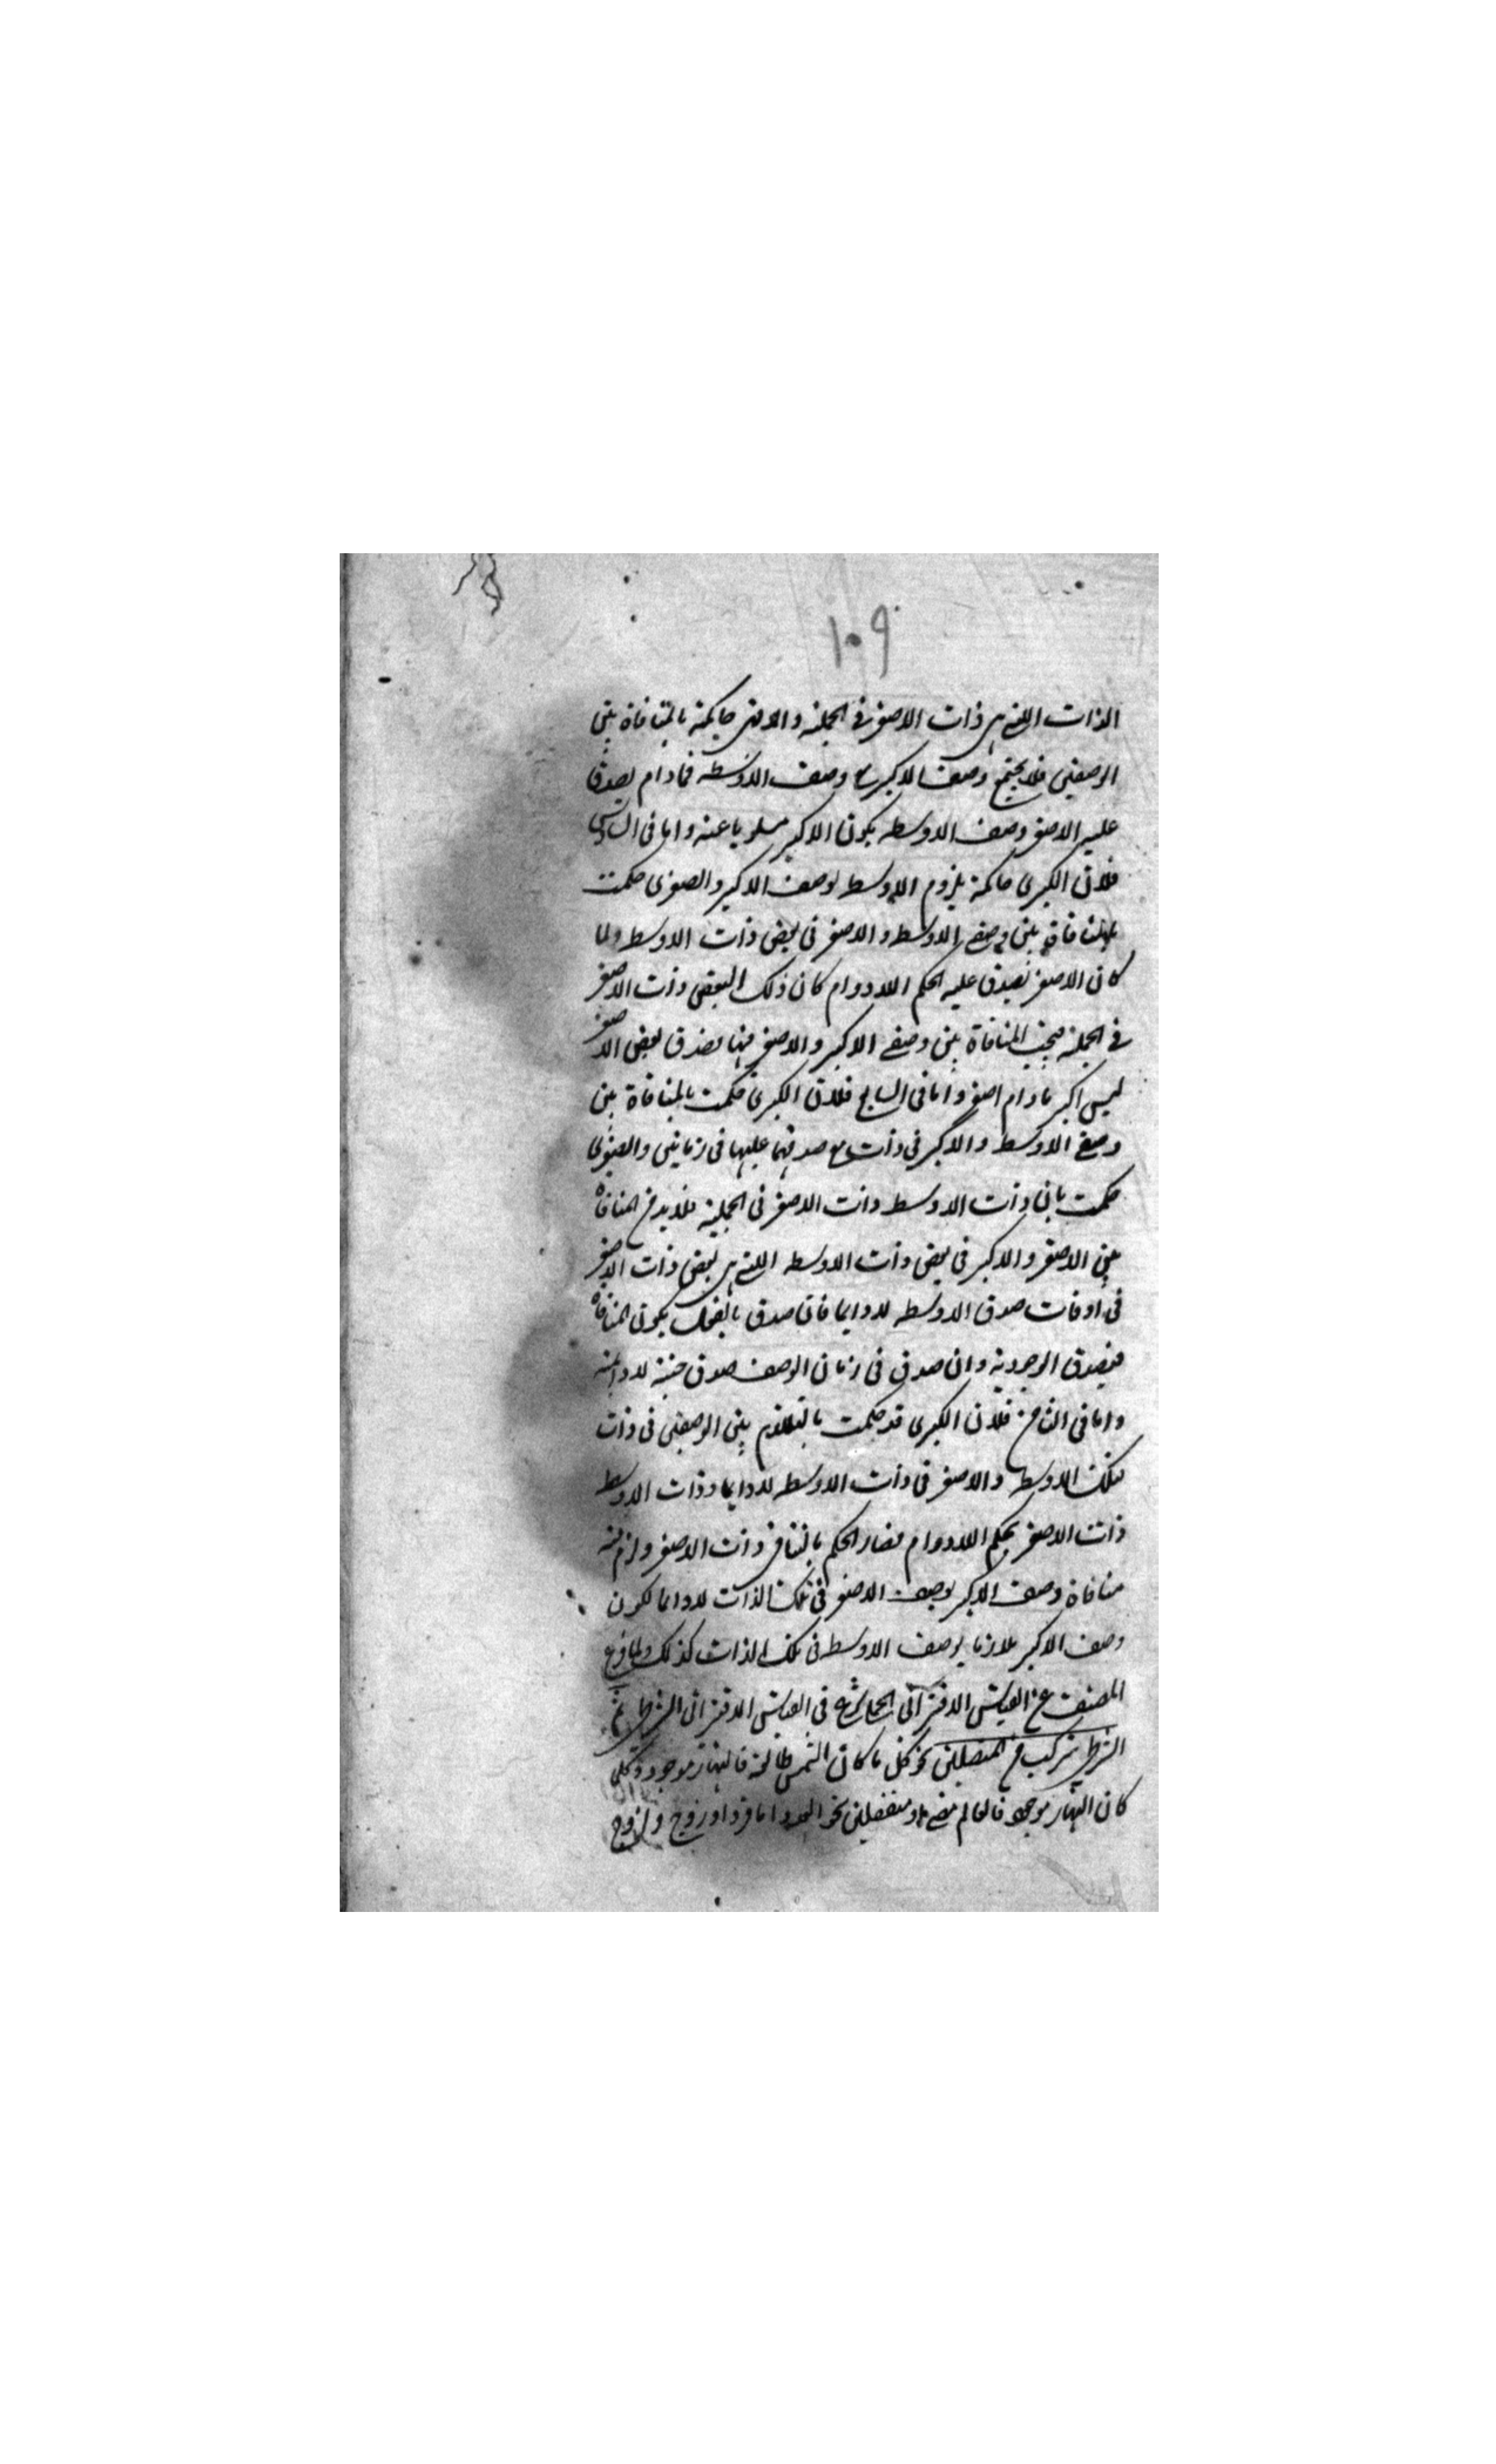 ١٠٩
الذات التي هي ذات الاصغر في الجملة والاخرى حاكمة بالمنافاة بين
الوصفين فلا يجتمع وصف الاكبر مع وصف الاوسط فمادام يصدق
عليه الاصغر وصف الاوسط يكون الاكبر مسلوبا عنه واما في السادس
فلان الكبرى حاكمة بلزوم الاوسط لوصف الاكبر والصغرى حكمت
بالمنافاة بين وصفي الاوسط والاصغر في بعض ذات الاوسط ولما
كان الاصغر يصدق عليه بحكم اللادوام كان ذلك البعض ذات الاصغر
في الجملة فيجب المنافاة بين وصفي الاكبر والاصغر فيها فصدق بعض الاصغر
ليس اكبر مادام اصغر واما في السابع فلان الكبرى حكمت بالمنافاة بين
وصفي الاوسط والاكبر في ذات مع صدقهما عليها في زمانين والصغرى
حكمت بان ذات الاوسط ذات الاصغر في الجملة فلابد من المنافاة
بين الاصغر والاكبر في بعض ذات الاوسط التي هي بعض ذات الاصغر
في اوقات صدق الاوسط لادايما فان صدق بالفعل يكون المنافاة
فيصدق الوجودية وان صدق في زمان الوصف صدق حينية لادائمة
واما في الثامن فلان الكبرى قد حكمت بالتلازم بين الوصفين في ذات
تلك الاوسط والاصغر في ذات الاوسط لادايما وذات الاوسط
ذات الاصغر بحكم اللادوام فصار الحكم بالتنافي ذات الاصغر ولزم منه
منافاة وصف الاكبر لوصف الاصغر في تلك الذات لادوايما لكون
وصف الاكبر ملازما لوصف الاوسط في تلك الذات كذلك ولما فرغ
المصنف عن القياس الاقتراني الحملي شرع في القياس الاقتراني الشرطي ثم
الشرطي يتركب من المتصلين نحو كل ما كان الشمس طالعة فالنهار موجود وكلما
كان النهار موجود فالعالم مضيء او منفصلين نحو العدد اما فرد او زوج والزوج